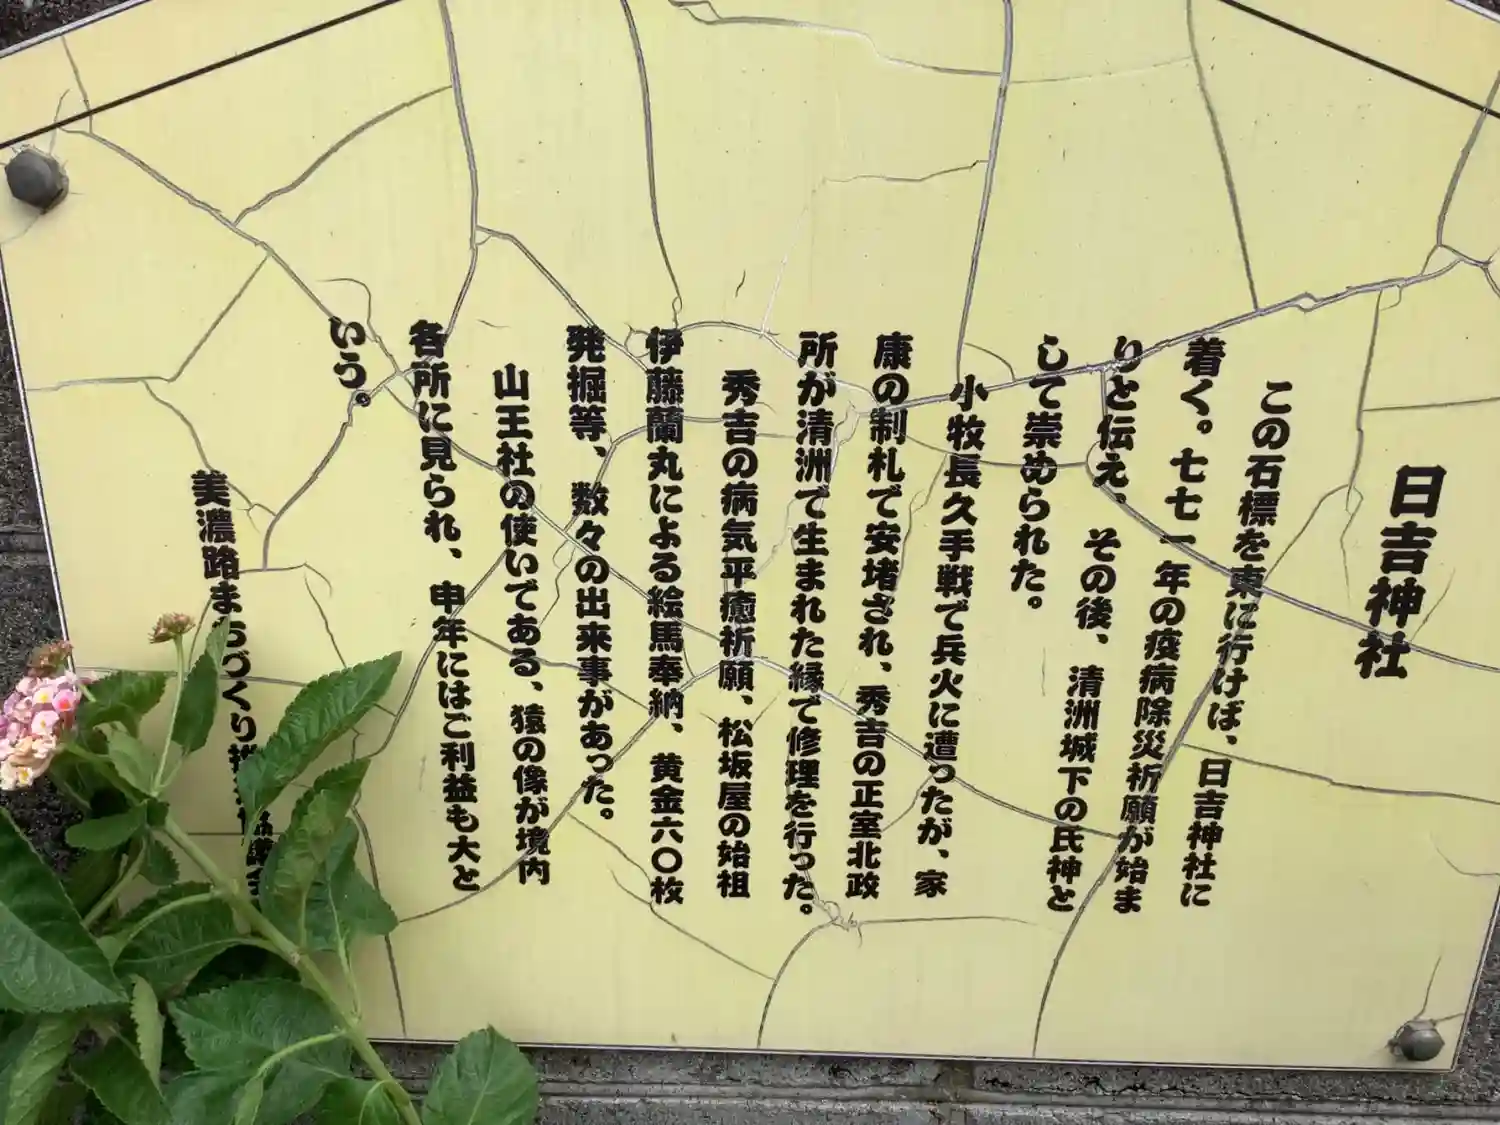 日吉神社
この石標を東に行けば、日吉神社に
着く。七七一年の疫病除災祈願が始ま
りと伝え、その後、清洲城下の氏神と
して崇められた。
小牧長久手戦で兵火に遭ったが、家
康の制札で安堵され、秀吉の正室北政
所が清洲で生まれた縁で修理を行った。
秀吉の病気平癒祈願、松坂屋の始祖
伊藤蘭丸による絵馬奉納、黄金六〇枚
発掘等、数々の出来事があった。
山王社の使いである、猿の像が境内
各所に見られ、申年にはご利益も大と
いう。
美濃路まちづくり推